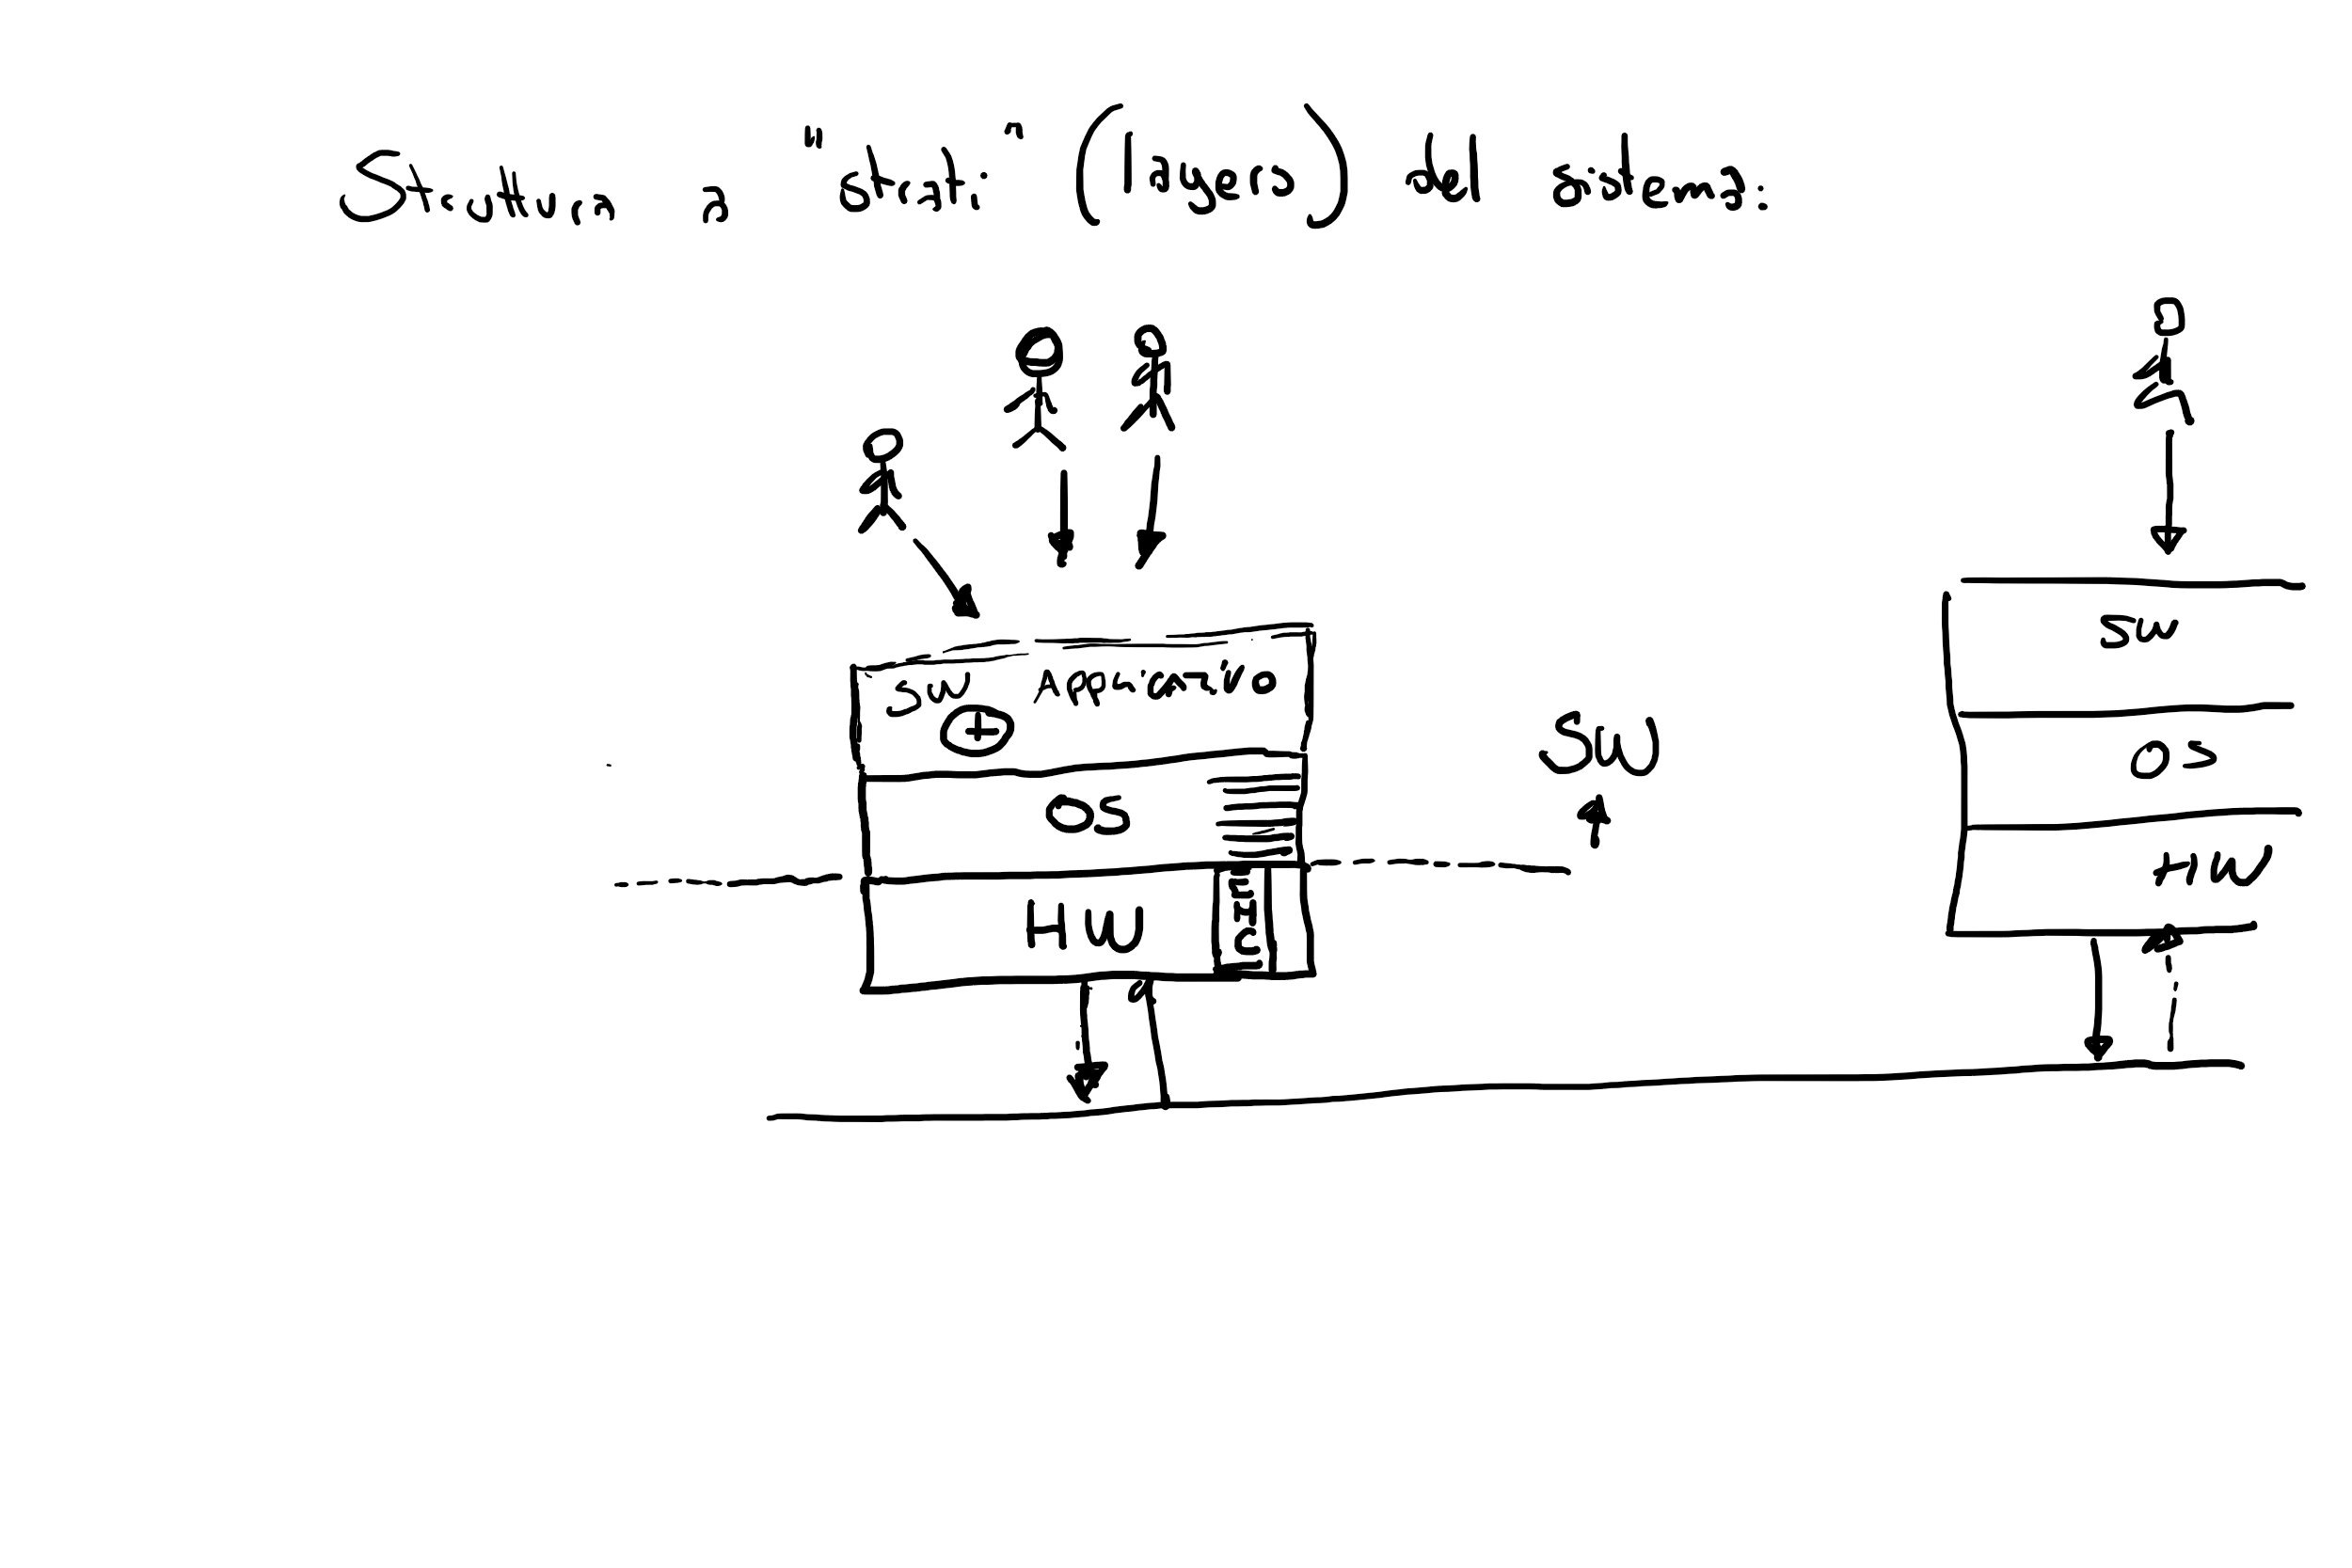 Struttura a "strati" (layers) del sistema:
SW Applicativo
SW
SW
OS
OS
HW
HW
NIC